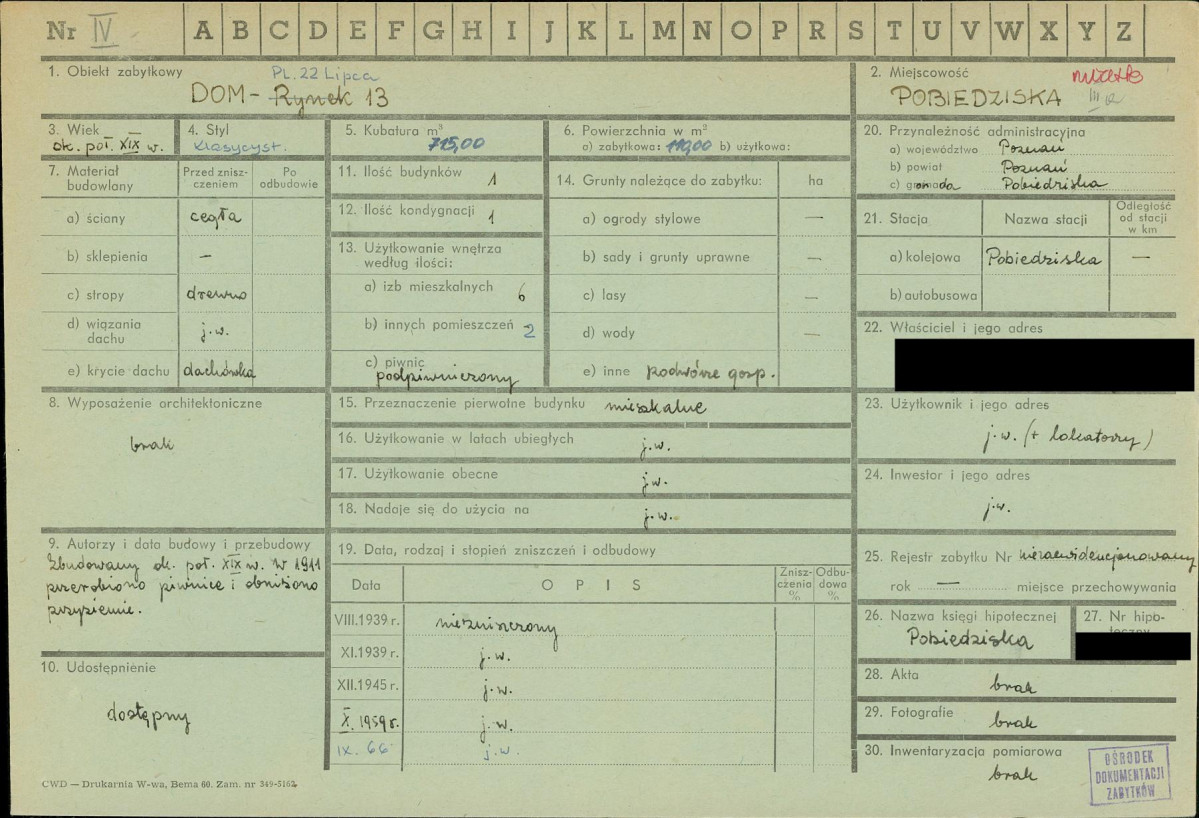 Nr IV A B C D E F G H I J K L M N O P R S T U V W X Y Z
1. Obiekt zabytkowy
PL. 22 Lipca
DOM - Rynek 13
2. Miejscowość
miasto
POBIEDZISKA
3. Wiek
ok. poł. XIX w.
4. Styl
klasycyst.
5. Kubatura m³
715,00
6. Powierzchnia w m²
a) zabytkowa: 110,00 b) użytkowa:
7. Materiał budowlany
Przed zniszczeniem
Po odbudowie
a) ściany cegła
b) sklepienia –
c) stropy drewno
d) wiązania dachu j.w.
e) krycie dachu dachówka
8. Wyposażenie architektoniczne
brak
9. Autorzy i data budowy i przebudowy
Zbudowany ok. poł. XIX w. W 1911
przerobiono piwnice i obniżono
przyziemie.
10. Udostępnienie
dostępny
11. Ilość budynków 1
12. Ilość kondygnacji 1
13. Użytkowanie wnętrza
według ilości:
a) izb mieszkalnych 6
b) innych pomieszczeń 2
c) piwnic
podpiwniczony
14. Grunty należące do zabytku: ha
a) ogrody stylowe —
b) sady i grunty uprawne —
c) lasy —
d) wody —
e) inne podwórze gosp.
15. Przeznaczenie pierwotne budynku mieszkalne
16. Użytkowanie w latach ubiegłych j.w.
17. Użytkowanie obecne j.w.
18. Nadaje się do użycia na j.w.
19. Data, rodzaj i stopień zniszczeń i odbudowy
Data OPIS Zniszczenia % Odbudowa %
VIII.1939 r. niezniszczony
XI.1939 r. j.w.
XII.1945 r. j.w.
X. 1959 r. j.w.
IX. 66 j.w.
20. Przynależność administracyjna
a) województwo Poznań
b) powiat Poznań
c) gromada Pobiedziska
21. Stacja Nazwa stacji Odległość od stacji w km
a) kolejowa Pobiedziska —
b) autobusowa
22. Właściciel i jego adres
23. Użytkownik i jego adres
j.w. (+ lokatorzy)
24. Inwestor i jego adres
j.w.
25. Rejestr zabytku Nr niezaewidencjonowany
rok — miejsce przechowywania
26. Nazwa księgi hipotecznej
Pobiedziska
27. Nr hipoteczny
28. Akta
brak
29. Fotografie
brak
30. Inwentaryzacja pomiarowa
brak
OŚRODEK
DOKUMENTACJI
ZABYTKÓW
CWD — Drukarnia W-wa, Bema 60. Zam. nr 349-5162